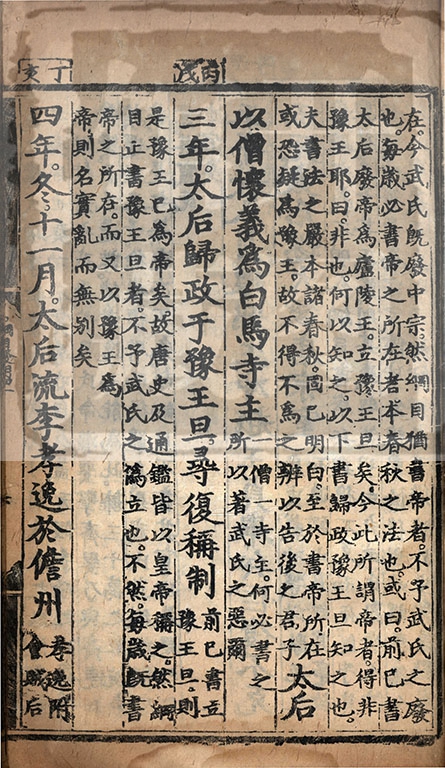 丙戌
丁亥
在。今武氏既廢中宗。然綱目猶書帝者。不予武氏之廢
也。每歲必書帝之所在者。本春秋之法也。或曰。前已書
太后廢帝為廬陵王。立豫王旦矣。今此所謂帝者。得非
豫王耶。曰。非也。何以知之。以下書歸政豫王旦知之也。
夫書法之嚴。本諸春秋。固已明白。至於書帝所在
或恐疑為豫王。故不得不為之辨以告後之君子
太后
以僧懷義為白馬寺主
一僧一寺主。何必書之
所以著武氏之惡爾
三年。太后歸政于豫王旦。尋復稱制
前已書立
豫王旦。則
是豫王已為帝矣。故唐史及通鑑皆以皇帝稱之。然綱
目正書豫王旦者。不予武氏之偽立也。不然。每歲既書
帝之所在。而又以豫王為
帝。則名實亂而無别矣
四年。冬。十一月。太后流李孝逸於儋州
孝逸附
會賊后